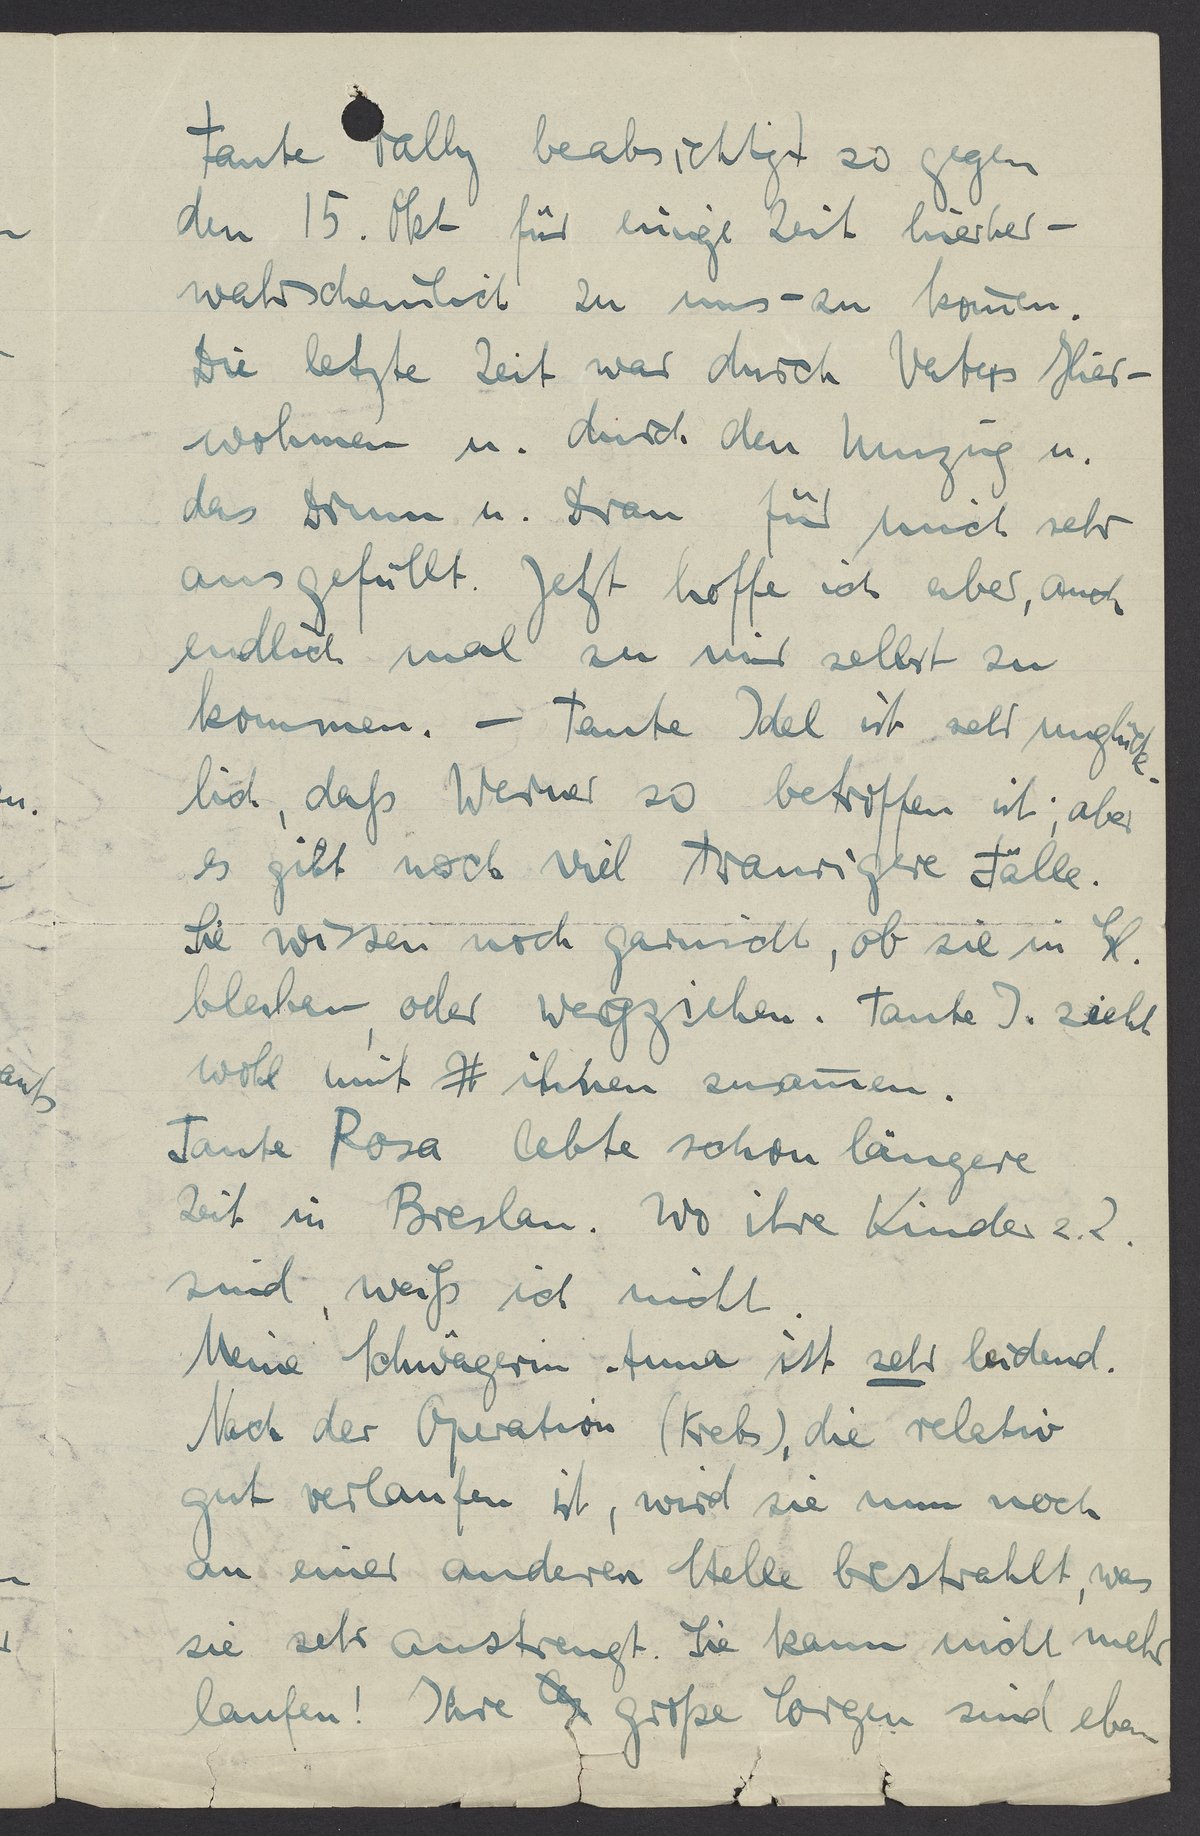 Tante Vally beabsichtigt so gegen
den 15. Okt für einige Zeit hierher –
wahrscheinlich zu uns – zu kom̅en.
Die letzte Zeit war durch Vaters Hier-
wohnen u. durch den Umzug u.
das Drum u. Dran für mich sehr
ausgefüllt. Jetzt hoffe ich aber, auch
endlich mal zu mir selbst zu
kommen. – Tante Idel ist sehr unglück-
lich, daß Werner so betroffen ist; aber
es gibt noch viel traurigere Fälle.
Sie wissen noch garnicht, ob sie in H.
bleiben, oder wegziehen. Tante I. zieht
wohl mit ihnen zusam̅en.
Tante Rosa lebte schon längere
Zeit in Breslau. Wo ihre Kinder z.Z.
sind, weiß ich nicht.
Meine Schwägerin Anna ist sehr leidend.
Nach der Operation (Krebs), die relativ
gut verlaufen ist, wird sie nun noch
an einer anderen Stelle bestrahlt, was
sie sehr anstrengt. Sie kann nicht mehr
laufen! Ihre große Sorgen sind eben